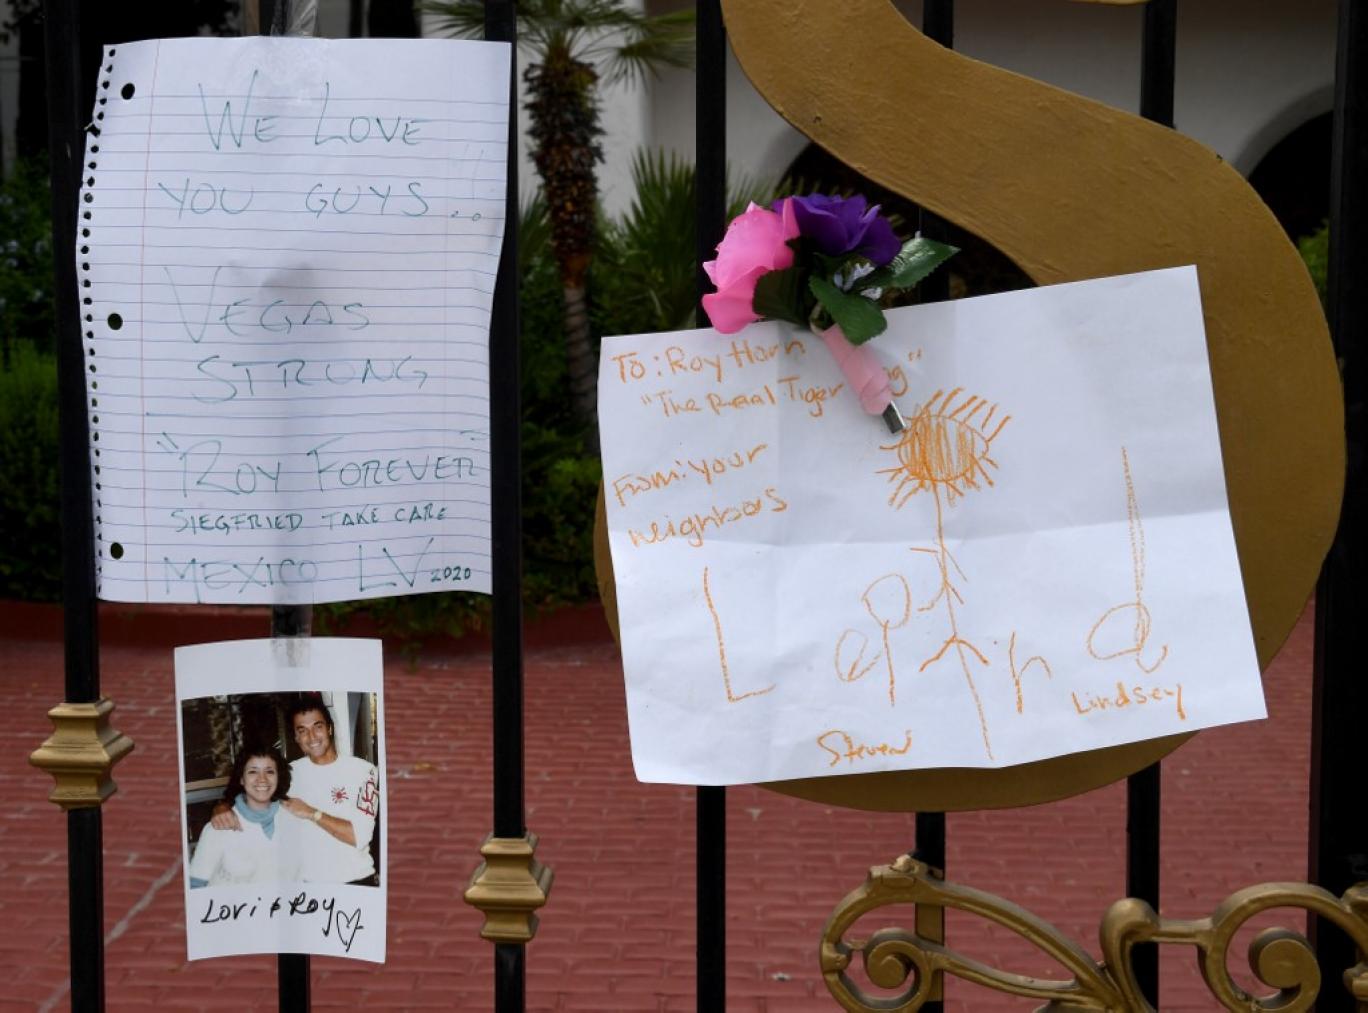 WE LOVE
YOU GUYS..!!
VEGAS
STRONG
"ROY FOREVER"
SIEGFRIED TAKE CARE
MEXICO LV 2020
Lori & Roy
To: Roy Horn
"The Real Tiger
From: your
neighbors
Legend
Steven
Lindsey